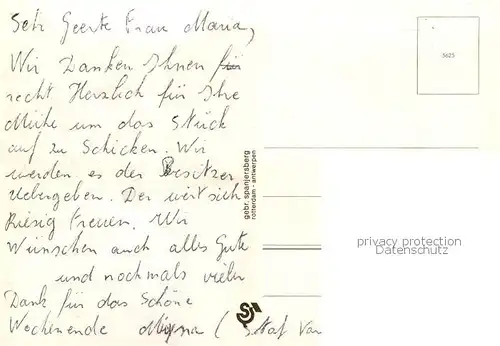 Sehr Geerte Frau Maria,
Wir Danken Ihnen für
recht Herzlich für Ihre
Mühe um das Stück
auf zu Schicken. Wir
werden es der Besitzer
Uebergeben. Der wirt sich
Riesig Freuen. Wir
Wünschen auch alles Gute
und nochmals vielen
Dank für das Schöne
Wochenende
5625
gebr. spanjersberg
rotterdam - antwerpen
privacy protection
Datenschutz